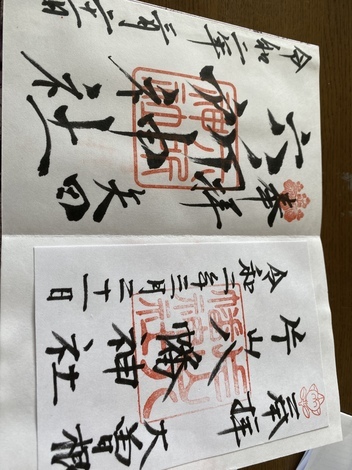 奉拝
矢田
六所神社
令和二年三月二十一日
参拝
大曽根
片山八幡神社
令和二年三月二十一日